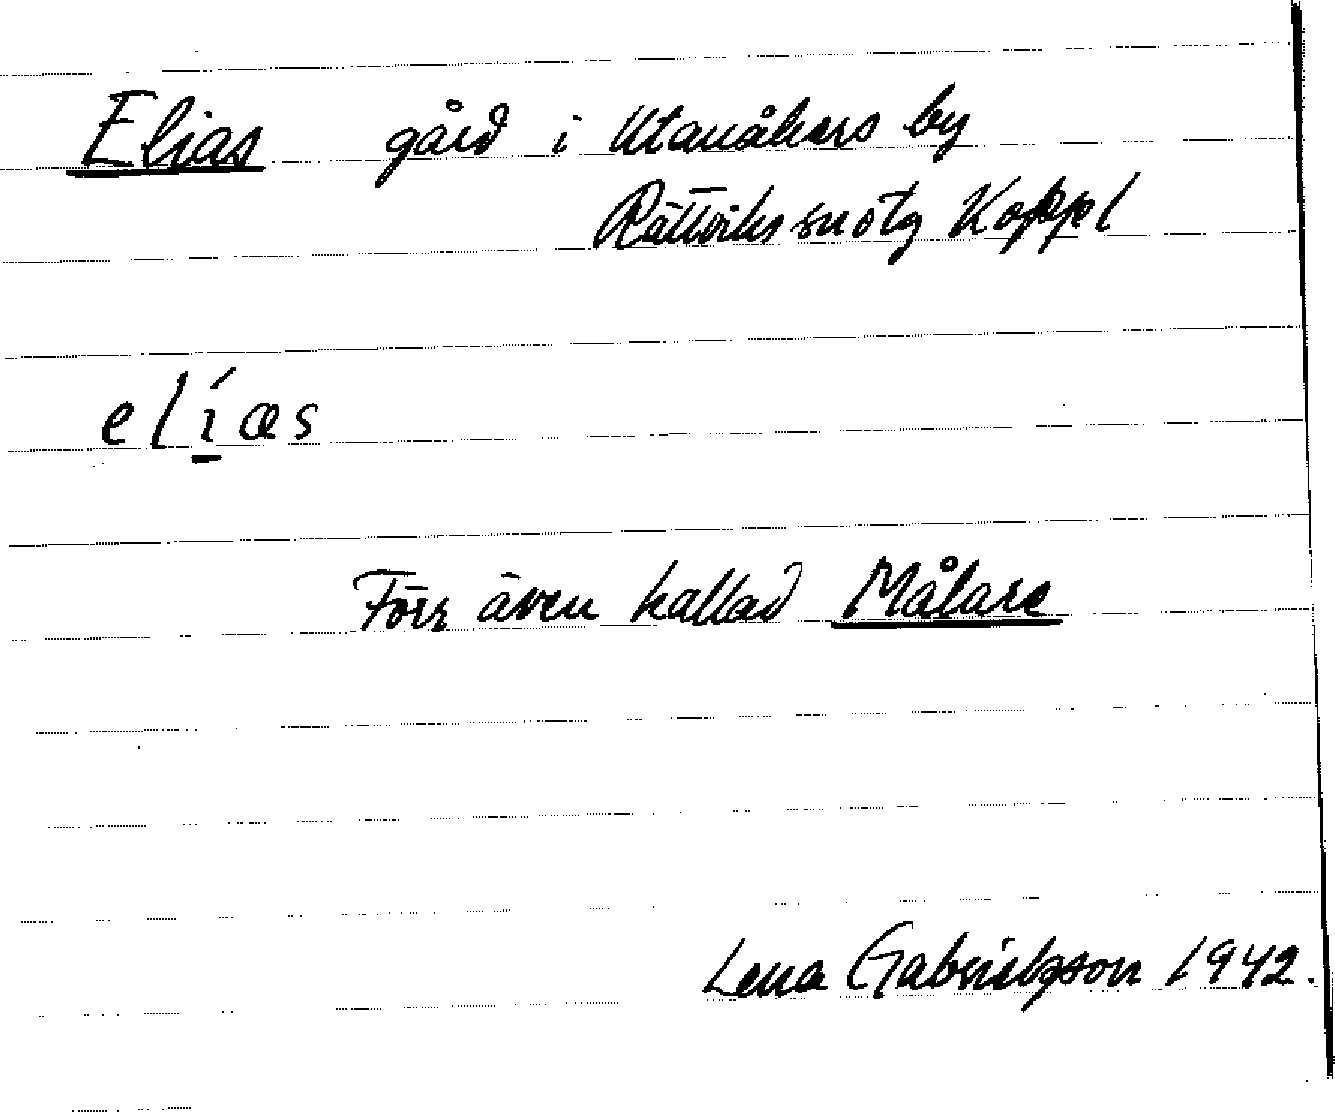 Elias gård i Utanåkers by
Rättviks snötg Koppl
elías
Förr även kallad Målare
Lena Gabrielsson 1942.